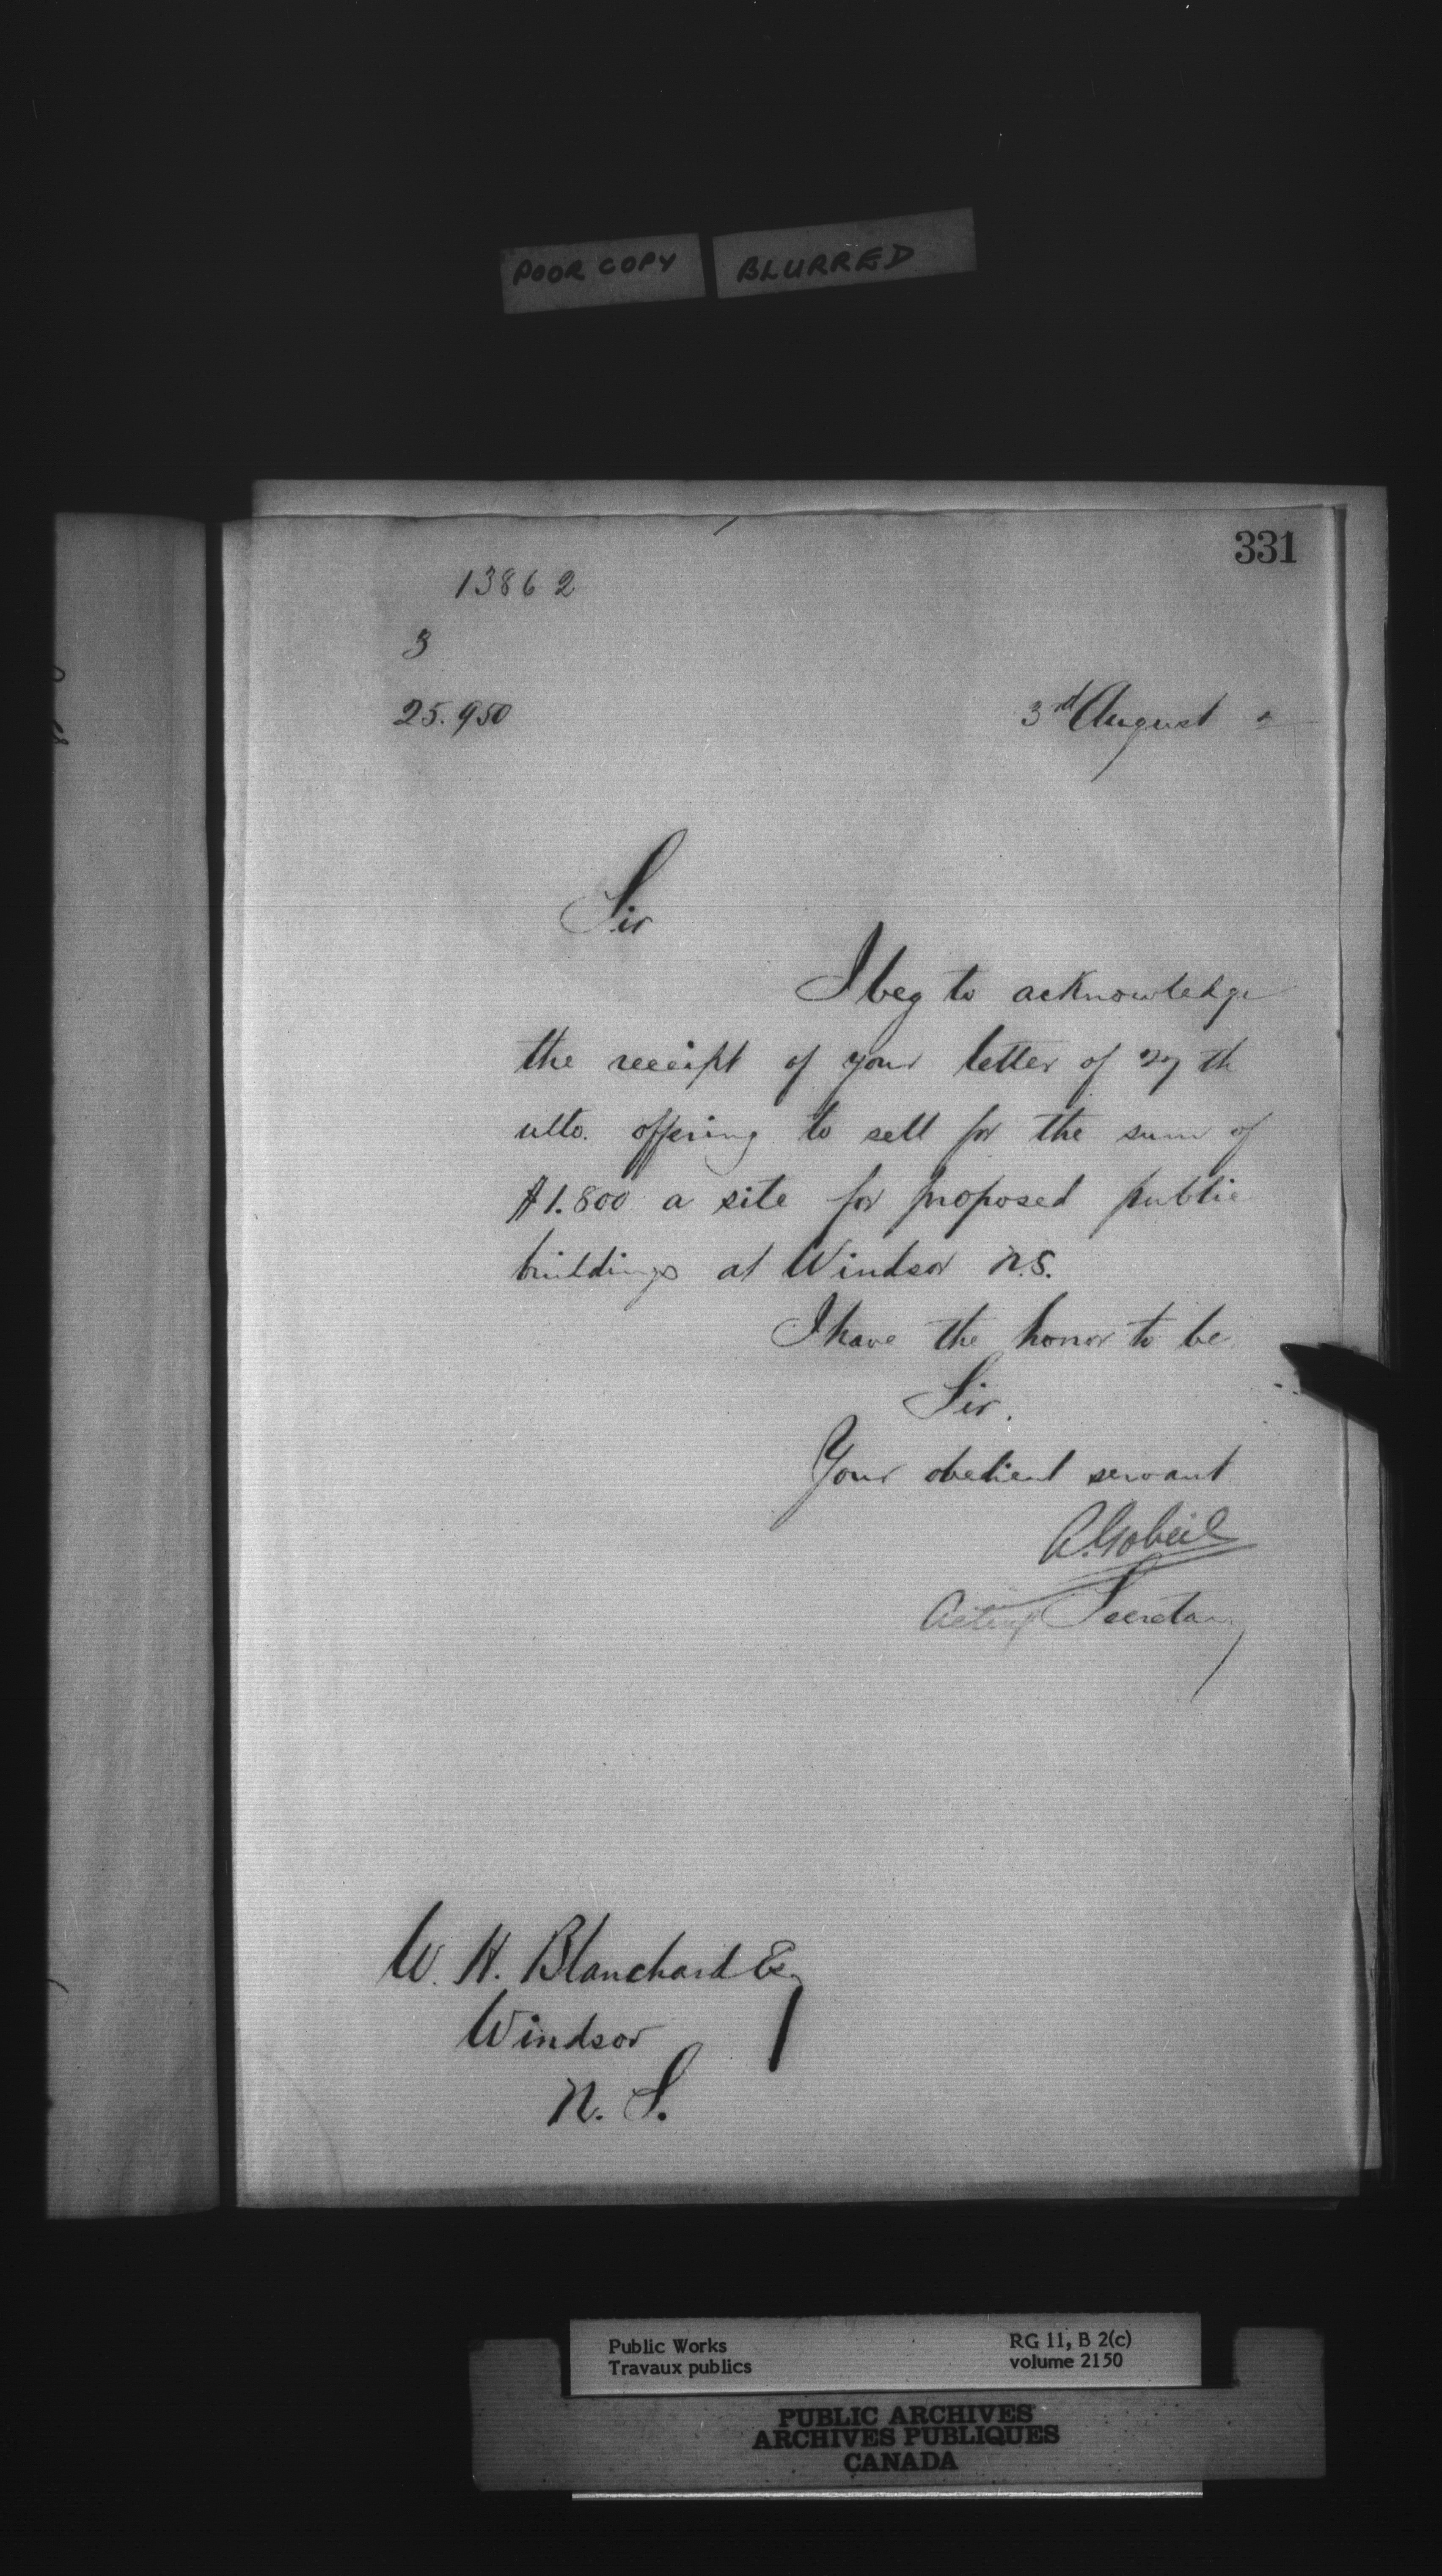 POOR COPY BLURRED
331
13862
3
25.950 3rd August 2
Sir
I beg to acknowledge
the receipt of your letter of 27th
ulto. offering to sell for the sum of
$1.800 a site for proposed public
buildings at Windsor N.S.
I have the honor to be
Sir.
Your obedient servant
A. Gobeil
Acting Secretary
W. H. Blanchard Esq
Windsor
N. S.
Public Works RG 11, B 2(c)
Travaux publics volume 2150
PUBLIC ARCHIVES
ARCHIVES PUBLIQUES
CANADA